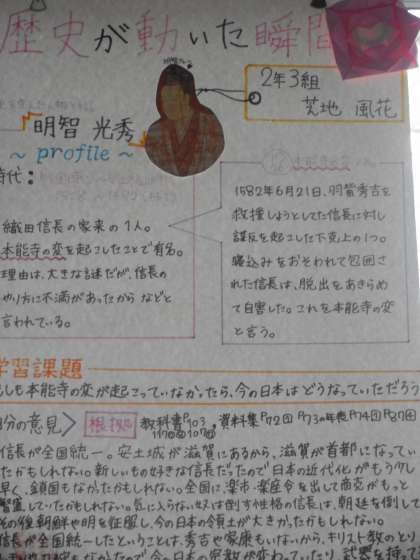 歴史が動いた瞬間
2年3組
芝地 風花
明智 光秀
~ profile ~
時代:
織田信長の家来の1人。
本能寺の変を起こしたことで有名。
理由は、大きな謎だが、信長の
やり方に不満があったから などと
言われている。
1582年6月21日、羽智秀吉を
救援しようとしてた信長に対し
謀反を起こした下克上の1つ。
寝込みをおそわれて包囲さ
れた信長は、脱出をあきらめ
て自害した。これを本能寺の変
と言う。
学習課題
もしも本能寺の変が起こっていなかったら、今の日本はどうなっていただろう
自分の意見 根拠 教科書P103 資料集P72 P73の年表 P74 P87
信長が全国統一。安土城が滋賀にあるから、滋賀が首都になってい
たかもしれない。新しいもの好きな信長だったので日本の近代化がもう少し
早く、鎖国もなかったかもしれない。全国に楽市・楽座令を出して商売がもっと
していたかもしれない。気に入らない奴は倒す性格の信長は、朝廷を倒して
その後朝鮮や明を征服し、今の日本の領土が大きかったかもしれない。
信長が全国統一したということは、秀吉や家康もいないから、キリスト教のとい
もなかったので今の日本の宗教が変わっていたり